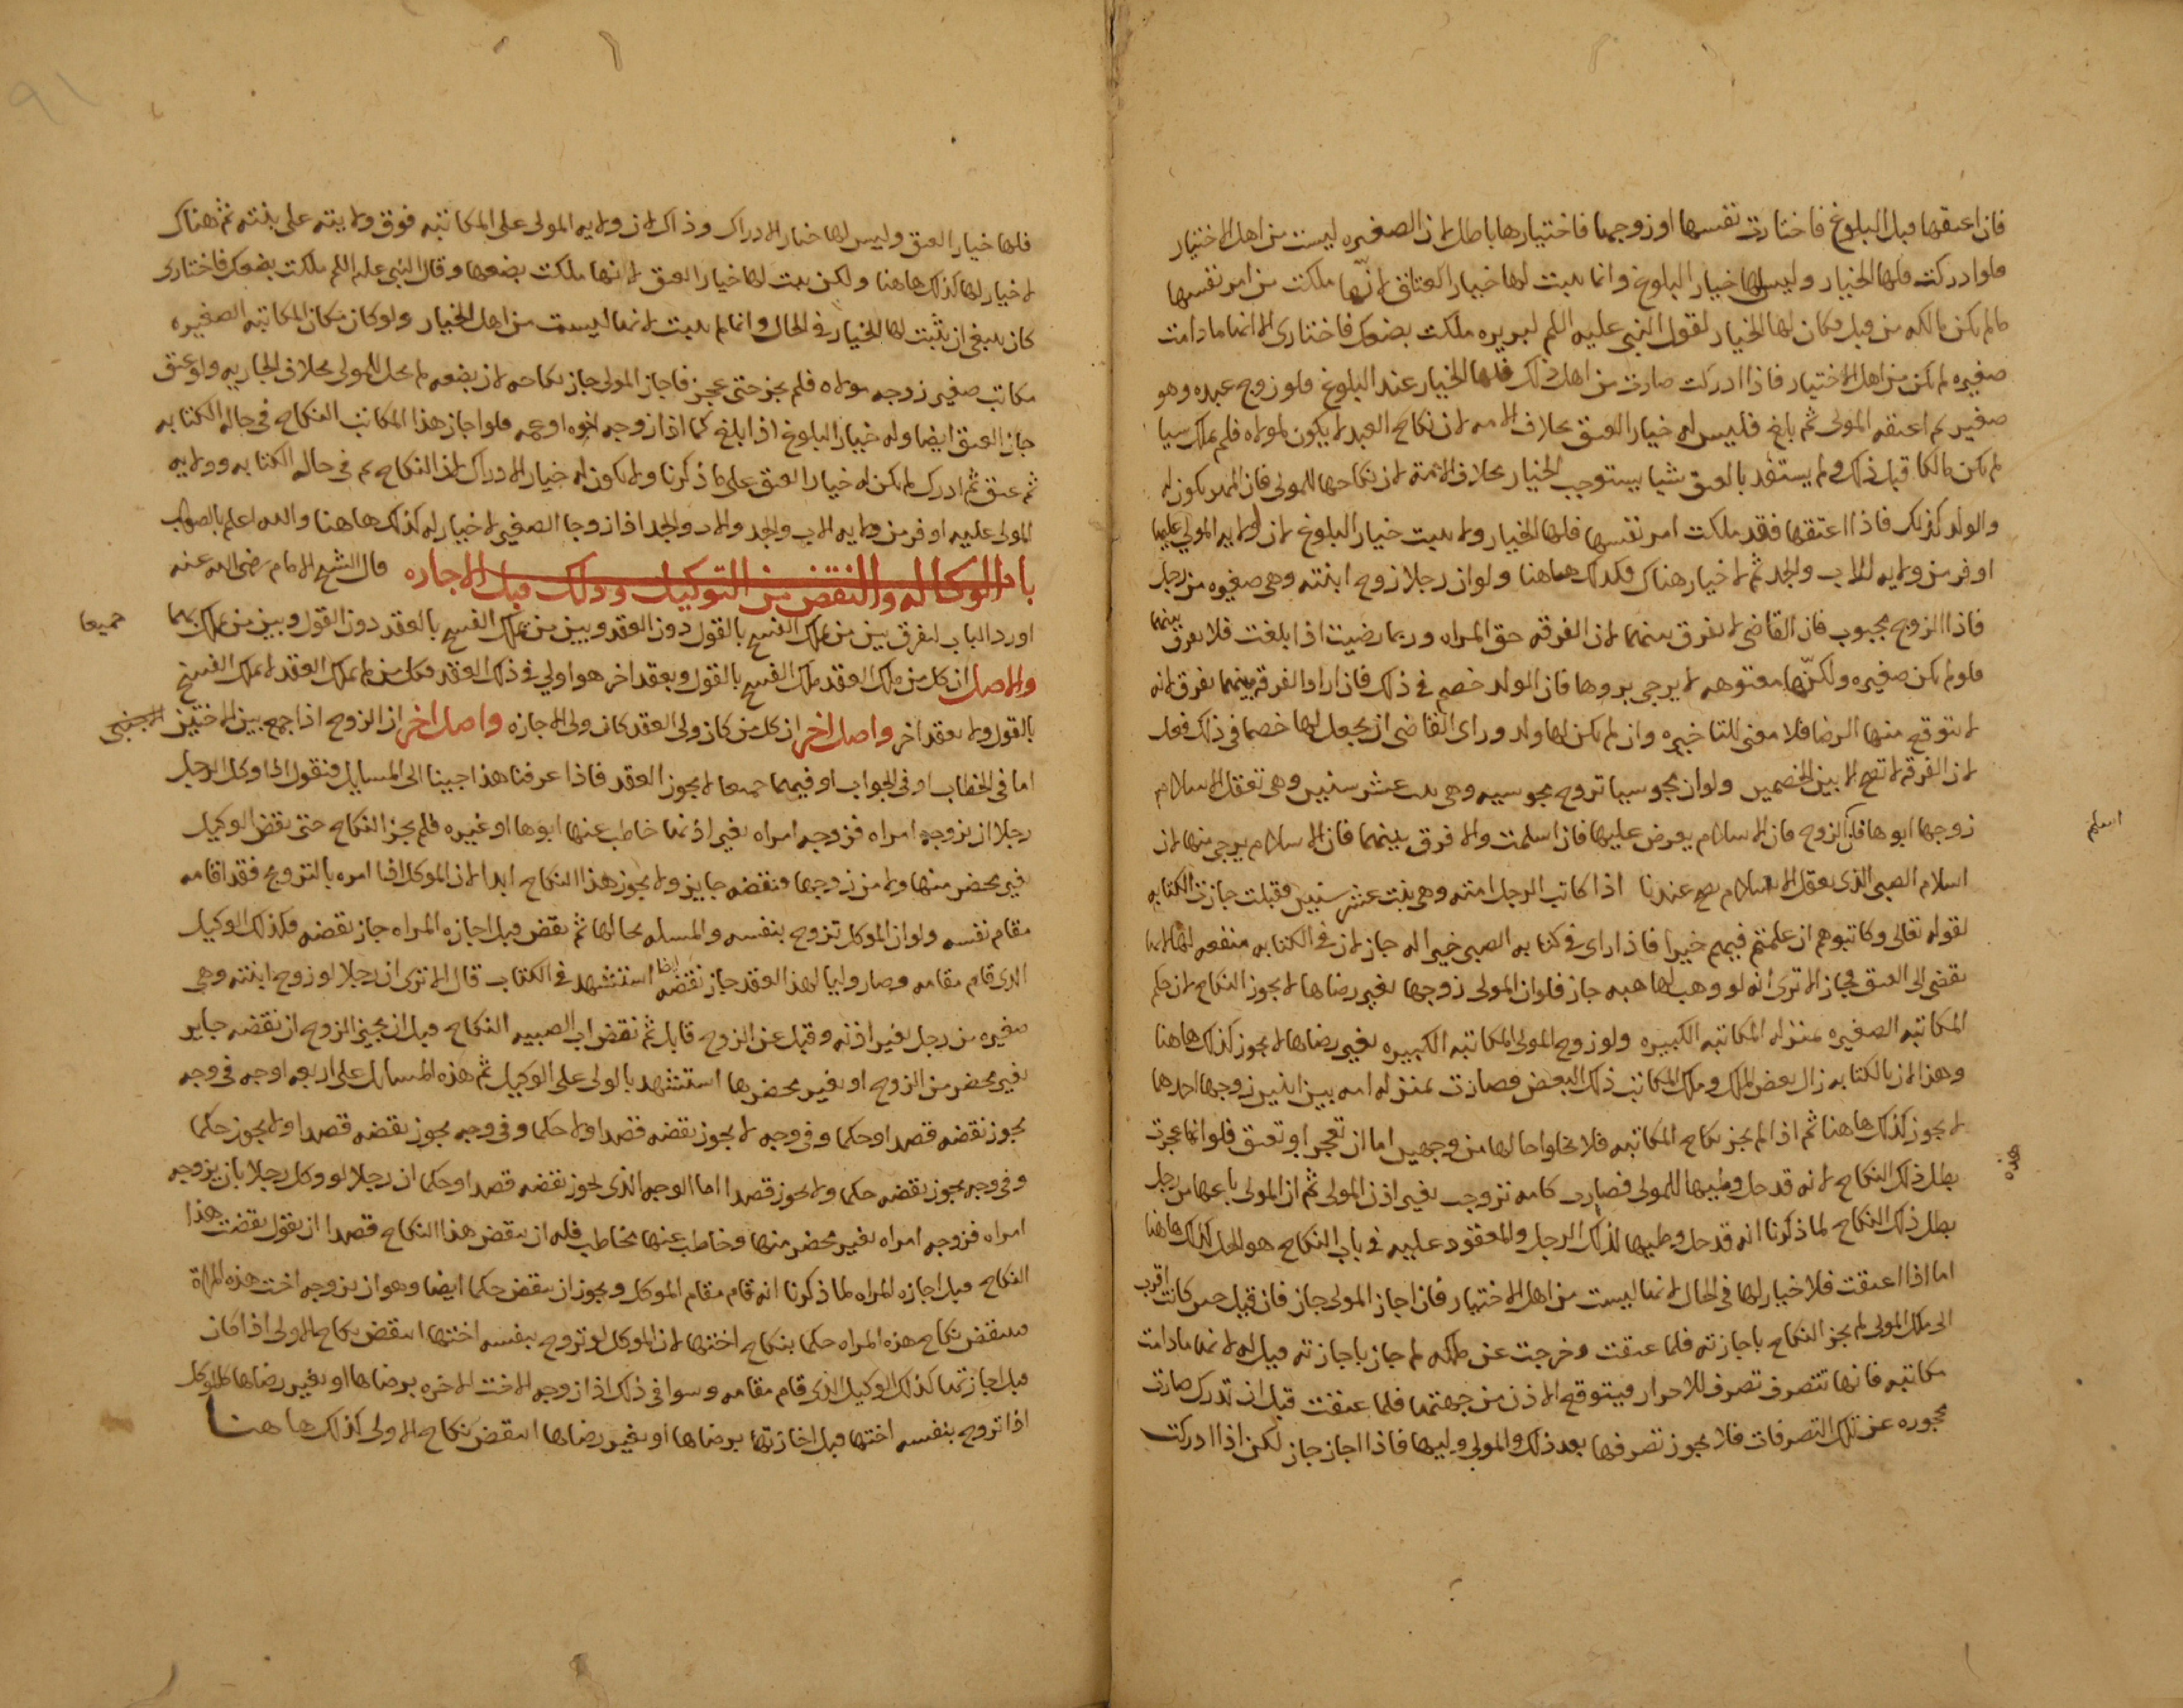 فان اعتقها قبل البلوغ فاختارت نفسها او زوجها فاختيارها باطل لان الصغيره ليست من اهل الاختيار
فلو ادركت فلها الخيار وليس لها خيار البلوغ وانما يثبت لها خيار العتاق لانها ملكت من امر نفسها
ما لم تكن مالكه من قبل فكان لها الخيار لقول النبي عليه السلم لبريره ملكت بضعك فاختاري الا انها ما دامت
صغيره لم تكن من اهل الاختيار فاذا ادركت صارت من اهل ذلك فلها الخيار عند البلوغ فلو زوج عبده وهو
صغير ثم اعتقه المولى ثم بلغ فليس له خيار العتق بخلاف الامه لان نكاح العبد لا يكون لمولاه فلم يملك شيا
لم يكن مالكا قبل ذلك ولم يستفد بالعتق شيا يستوجب الخيار بخلاف الامة لان نكاحها للمولى فان المهر يكون له
والولد كذلك فاذا اعتقها فقد ملكت امر نفسها فلها الخيار ولا يثبت خيار البلوغ لان ولايه المولى عليها
اوفر من ولايه الاب والجد ثم لا خيار هناك فكذلك هاهنا ولو ان رجلا زوج ابنته وهي صغيره من رجل
فاذا الزوج مجبوب فان القاضي لا يفرق بينهما لان الفرقه حق المراه وربما رضيت اذا بلغت فلا يفرق بينهما
فلو لم تكن صغيره ولكنها معتوهه لا يرجى بروها فان الولد خصم في ذلك فان اراد الفرقه بينهما يفرق لانه
لا يتوقع منها الرضا فلا معنى للتاخيره وان لم يكن لها ولد وراى القاضي ان يجعل لها خصما في ذلك فعل
لان الفرقه لا تقع الا بين الخصمين ولو ان مجوسيا تزوج مجوسيه وهي بنت عشر سنين وهي تعقل الاسلام
زوجها ابوها فان الزوج فان الاسلام يعرض عليها فان اسلمت والا فرق بينهما فان الاسلام يرجى منها لان
اسلم
اسلام الصبي الذي يعقل الاسلام صح عندنا اذا كاتب الرجل امته وهي بنت عشر سنين فقبلت جازت الكتابه
لقوله تعالى وكاتبوهم ان علمتم فيهم خيرا فاذا راى في كتابه الصبي خيرا له جاز لان في الكتابه منفعه لها لانها
تفضي الى العتق فجاز الا ترى انه لو وهب لها هبه جاز فلو ان المولى زوجها بغير رضاها لا يجوز النكاح لان حكم
المكاتبه الصغيره بمنزله المكاتبه الكبيره ولو زوج المولى المكاتبه الكبيره بغير رضاها لا يجوز كذلك هاهنا
وهذا لان بالكتابه زال بعض الملك وملك المكاتب ذلك البعض فصارت بمنزله امه بين اثنين زوجها احدهما
لا يجوز كذلك هاهنا ثم اذا لم يجز نكاح المكاتبه فلا يخلوا حالها من وجهين اما ان تعجز او تعتق فلو انها عجزت
هذه
بطل ذلك النكاح لانه قد حل وطيها للمولى فصارت كامه تزوجت بغير اذن المولى ثم ان المولى باعها من رجل
بطل ذلك النكاح لما ذكرنا انه قد حل وطيها لذلك الرجل والمعقود عليه في باب النكاح هو الحل كذلك هاهنا
اما اذا اعتقت فلا خيار لها في الحال لانها ليست من اهل الاختيار فان اجاز المولى جاز فان قيل حين كانت اقرب
الى ملك المولى لم يجز النكاح باجازته فلما عتقت وخرجت عن ملكه لم جاز باجازته قيل له لانها ما دامت
مكاتبه فانها تتصرف تصرف للاحرار فيتوقع الاذن من جهتها فلما عتقت قبل ان تدرك صارت
محجوره عن تلك التصرفات فلا يجوز تصرفها بعد ذلك والمولى وليها فاذا اجاز جاز لكن اذا ادركت
فلها خيار العتق وليس لها خيار الادراك وذاك لان ولايه المولى على المكاتبه فوق ولايته على بنته ثم هناك
لا خيار لها كذلك هاهنا ولكن يثبت لها خيار العتق لانها ملكت بضعها وقال النبي عليه السلم ملكت بضعك فاختاري
كان ينبغي ان يثبت لها الخيار في الحال وانما لم يثبت لانها ليست من اهل الخيار ولو كان مكان المكاتبه الصغيره
مكاتب صغير زوجه مولاه فلم يجز حتى عجز فاجاز المولى جاز نكاحه لان بضعه لم يحل للمولى بخلاف الجاريه ولو عتق
جاز العتق ايضا وله خيار البلوغ اذا بلغ كما اذا زوجه اخوه او عمه فلو اجاز هذا المكاتب النكاح في حاله الكتابه
ثم عتق ثم ادرك لم يكن له خيار العتق على ما ذكرنا ولا يكون له خيار الادراك لان النكاح تم في حاله الكتابه وولايه
المولى عليه اوفر من ولايه الاب والجد والاب والجد اذا زوجا الصغير لا خيار له كذلك هاهنا والله اعلم بالصواب
باب الوكاله والنقض من التوكيل وذلك قبل الاجازه قال الشيخ الامام رضى الله عنه
اورد الباب ليفرق بين من يملك الفسخ بالقول دون العقد وبين من يملك الفسخ بالعقد دون القول وبين من يملك بهما
جميعا
والاصل ان كل من ملك العقد ملك الفسخ بالقول وبعقد اخر هو اولي في ذلك العقد فكل من لم يملك العقد لا يملك الفسخ
بالقول ولا بعقد اخر واصل اخر ان كل من كان ولى العقد كان ولى الاجازه واصل اخر ان الزوج اذا جمع بين الاختين
اما في الخطاب او في الجواب او فيهما جميعا لا يجوز العقد فاذا عرفنا هذا جينا الى المسايل فنقول اذا وكل الرجل
رجلا ان يزوجه امراه فزوجه امراه بغير اذنها خاطب عنها ابوها او غيره فلم يجز النكاح حتى نقض الوكيل
بغير محضر منها ولا من زوجها فنقضه جايز ولا يجوز هذا النكاح ابدا لان الموكل لما امره بالتزويج فقد اقامه
مقام نفسه ولو ان الموكل تزوج بنفسه والمسله بحالها ثم نقض قبل اجازه المراه جاز نقضه فكذلك الوكيل
الذي قام مقامه وصار وليا لهذا العقد جاز نقضه ايضا استشهد في الكتاب قال الا ترى ان رجلا لو زوج ابنته وهي
صغيره من رجل بغير اذنه وقبل عن الزوج قابل ثم نقض اب الصبيه النكاح قبل ان يجيز الزوج ان نقضه جايز
بغير محضر من الزوج او بغير محضرها استشهد بالولى على الوكيل ثم هذه المسايل على اربعه اوجه في وجه
يجوز نقضه قصدا وحكما وفي وجه لا يجوز نقضه قصدا ولا حكما وفي وجه يجوز نقضه قصدا ولا يجوز حكما
وفي وجه يجوز نقضه حكما ولا يجوز قصدا اما الوجه الذي يجوز نقضه قصدا وحكما ان رجلا لو وكل رجلا بان يزوجه
امراه فزوجه امراه بغير محضر منها وخاطب عنها مخاطب فله ان ينقض هذا النكاح قصدا ان يقول نقضت هذا
النكاح قبل اجازه المراه لما ذكرنا انه قام مقام الموكل ويجوز ان ينقض حكما ايضا وهو ان يزوجه اخت هذه المراة
فينقض نكاح هذه المراه حكما بنكاح اختها لان الموكل لو تزوج بنفسه اختها انتقض نكاح الاولى اذا كان
قبل اجازتها كذلك الوكيل الذي قام مقامه وسوا في ذلك اذا زوجه الاخت الاخره برضاها او بغير رضاها كالموكل
اذا تزوج بنفسه اختها قبل اجازتها برضاها او بغير رضاها انتقض نكاح الاولى كذلك هاهنا